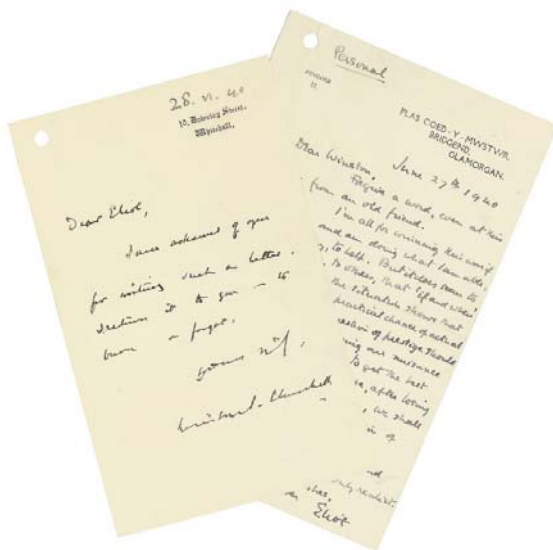 28. VI. 40
10, Downing Street,
Whitehall.
Dear Eliot,
I am ashamed of you
for writing such a letter.
I return it to you — to
burn & forget.
Yours
Winston S. Churchill
Personal
PENCOED
11.
PLAS COED-Y-MWSTWR,
BRIDGEND,
GLAMORGAN.
June 27th 1940
Dear Winston,
Forgive a word, even at this
from an old friend.
I'm all for winning this war if
and am doing what I am able,
to help. But it does seem to
to others, that "if and when"
the situation shows that
practical chance of actual
of prestige should
ing our nuisance
to get the best
after losing
, we shall
in of
nd
only realist.
shes,
Eliot